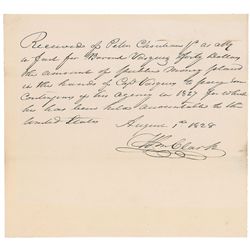 Received of Peter Chouteau Jr as atty
in fact for Baronet Vasquez forty Dollars
the amount of public Money placed
in the hands of Capt Vasquez to pay for
Contingens of his agency in 1827 for which
he has been held accountable to the
United States
August 1st 1828
Wm Clark